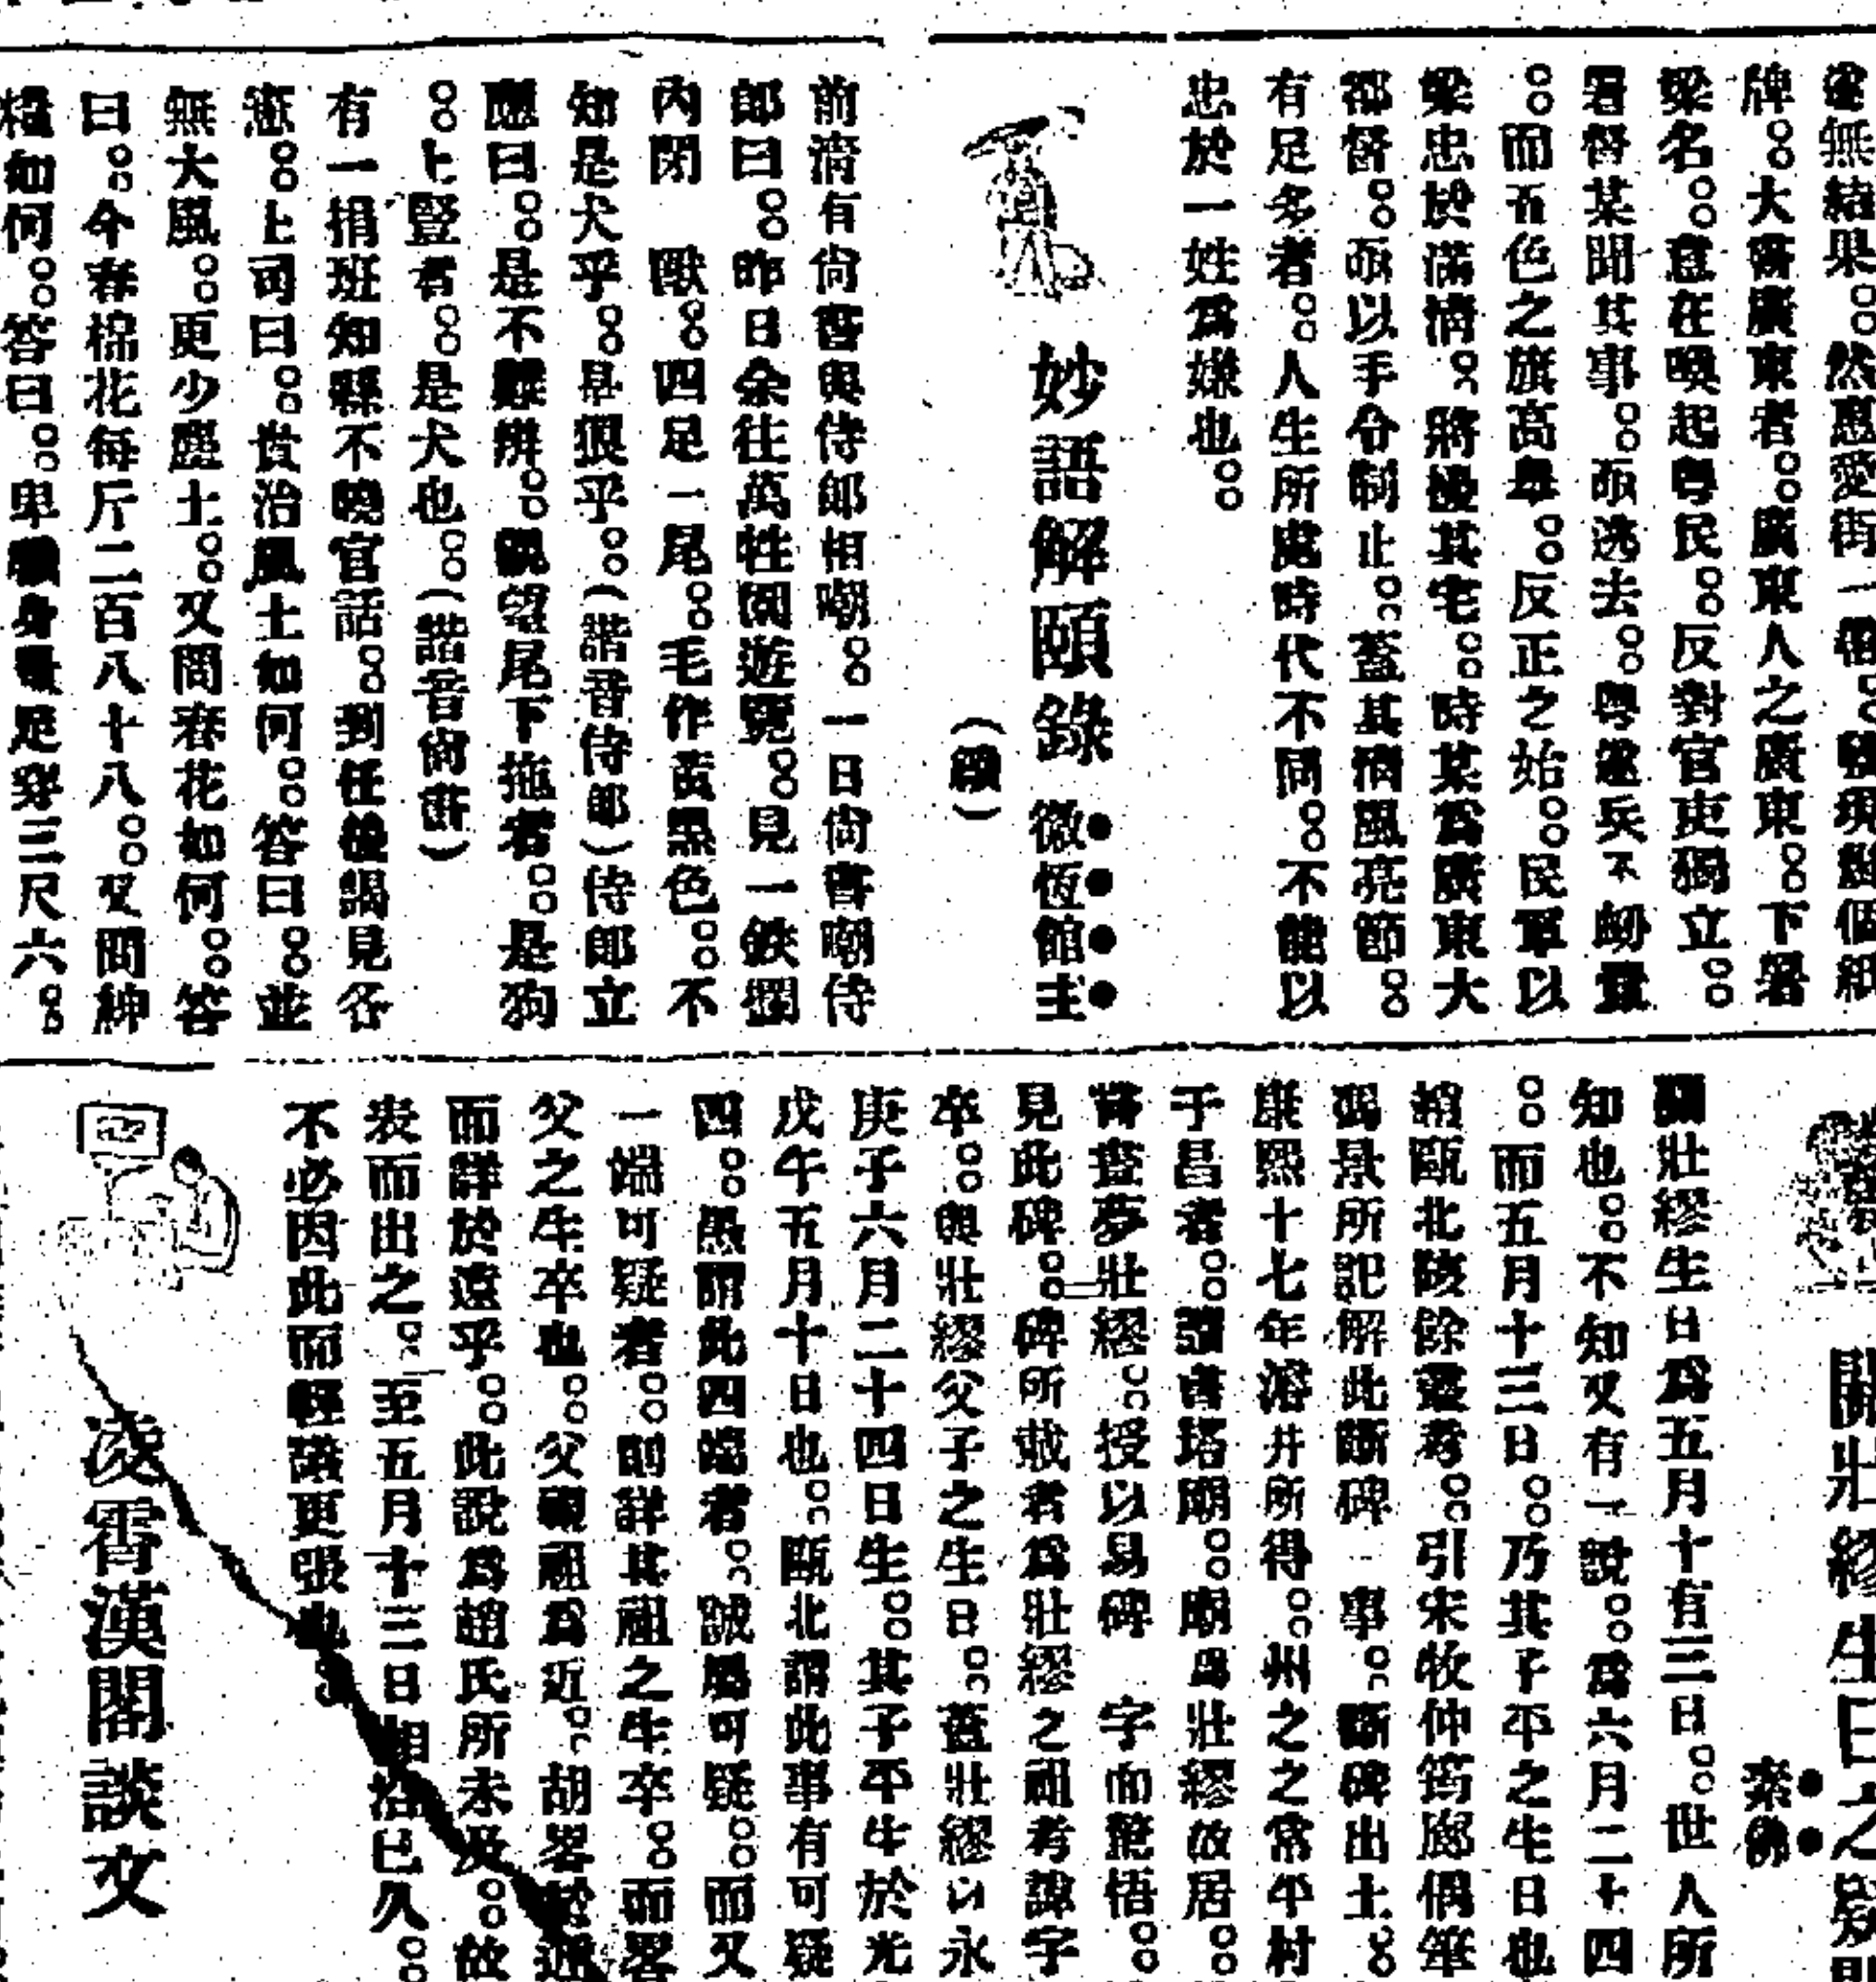 無結果。然惠愛街一
牌。大書廣東者。廣東人之廣東。下署
梁名。意在喚起粵民。反對官吏獨立。
署督某聞其事。亟逃去。粵遂兵不衂
。而五色之旗高粵。反正之始。民軍以
梁忠於滿清。將擾其宅。時某爲廣東大
都督。亟以手令制止。蓋其清風亮節。
有足多者。人生所處時代不同。不能以
忠於一姓爲嫌也。
妙語解頤錄
微恆館主
(續)
前清有尙書與侍郎相嘲。一日尙書嘲侍
郎曰。昨日余往萬牲園遊覽。見一鉄欄
內閉 獸。四足一尾。毛作黃黑色。不
知是犬乎。是狼乎。(諧音侍郎)侍郎立
應曰。是不難辨。觀望尾下拖者。是狗
。上豎者。是犬也。(諧音尙書)
有一捐班知縣不曉官話。到任後謁見各
憲。上司曰。貴治風土如何。答曰。並
無大風。更少塵土。又問春花如何。答
曰。今春棉花每斤二百八十八。又問紳
糧如何。答曰。卑職身 足穿三尺六。
關壯繆生日之疑
素佛
關壯繆生日爲五月十有三日。世人所
知也。不知又有一說。爲六月二十四
。而五月十三日。乃其子平之生日也
趙甌北陔餘叢考。引宋牧仲筠廊偶筆
馮景所記解此斷碑 事。斷碑出土。
康熙十七年濬井所得。州之之常平村
于昌者。讀書塔廟。廟爲壯繆故居。
嘗晝夢壯繆。授以易碑 字而驚悟。
見此碑。碑所載者爲壯繆之祖考諱字
卒。與壯繆父子之生日。蓋壯繆以永
庚子六月二十四日生。其子平生於光
戊午五月十日也。甌北謂此事有可疑
四。愚謂此四端者。誠屬可疑。而又
一端可疑者。則詳其祖之生卒。而畧
父之生卒也。父視祖爲近。胡畧於近
而詳於遠乎。此說爲趙氏所未及。故
表而出之。至五月十三日相沿已久。
不必因此而輕議更張也。
凌霄漢閣談文